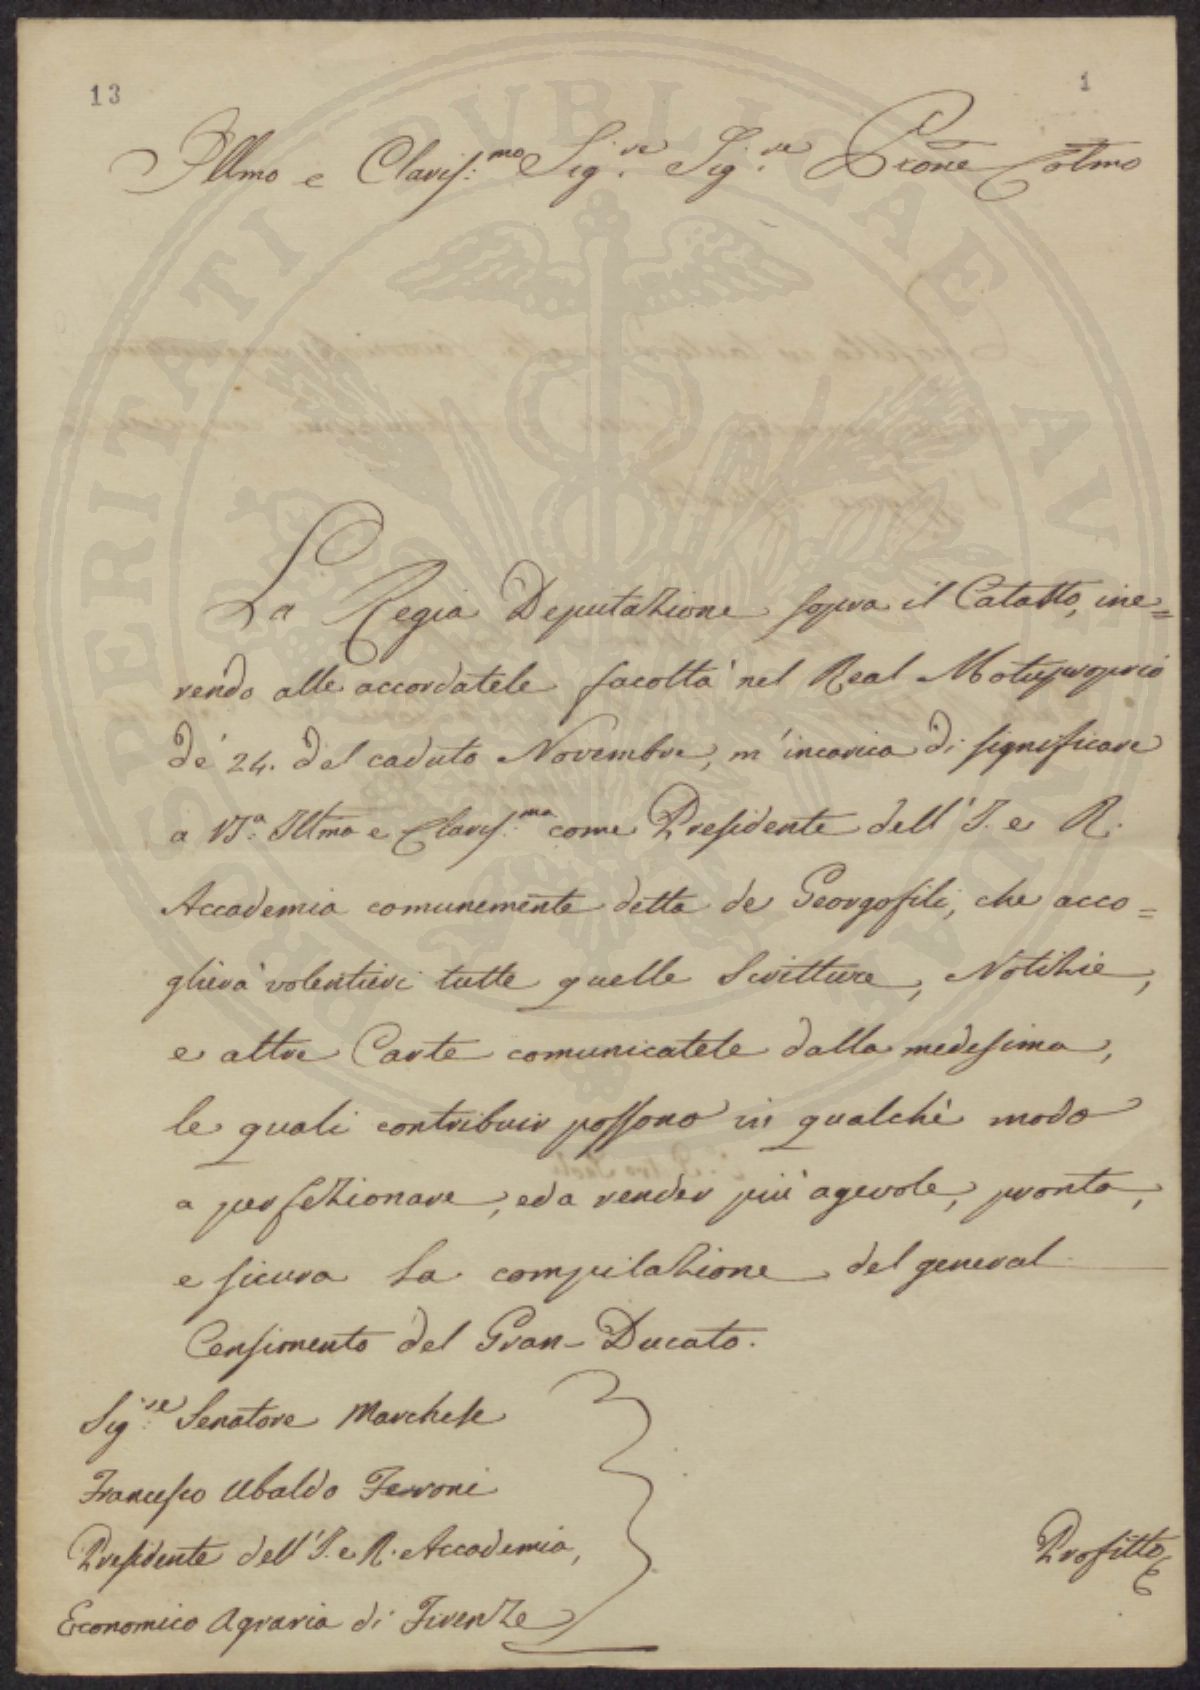 13
1
Illmo e Clariss:mo Sig.re Sig.re Prone Colmo
La Regia Deputazione sopra il Catasto, ine=
rendo alle accordatele facoltà nel Real Motuproprio
de' 24. del caduto Novembre, m'incarica di significare
a VS.a Illma e Clariss:ma come Presidente dell'I. e R.
Accademia comunemente detta de Georgofili, che acco=
glierà volentieri tutte quelle Scritture, Notizie,
e altre Carte comunicatele dalla medesima,
le quali contribuir possono in qualche modo
a perfezionare, ed a render più agevole, pronta,
e sicura la compilazione del general
Censimento del Gran-Ducato.
Sig.re Senatore Marchese
Francesco Ubaldo Ferroni
Presidente dell'I. e R. Accademia,
Economico Agraria di Firenze
Profitto
PROSPERITATI PVBLICAE AVGENDAE